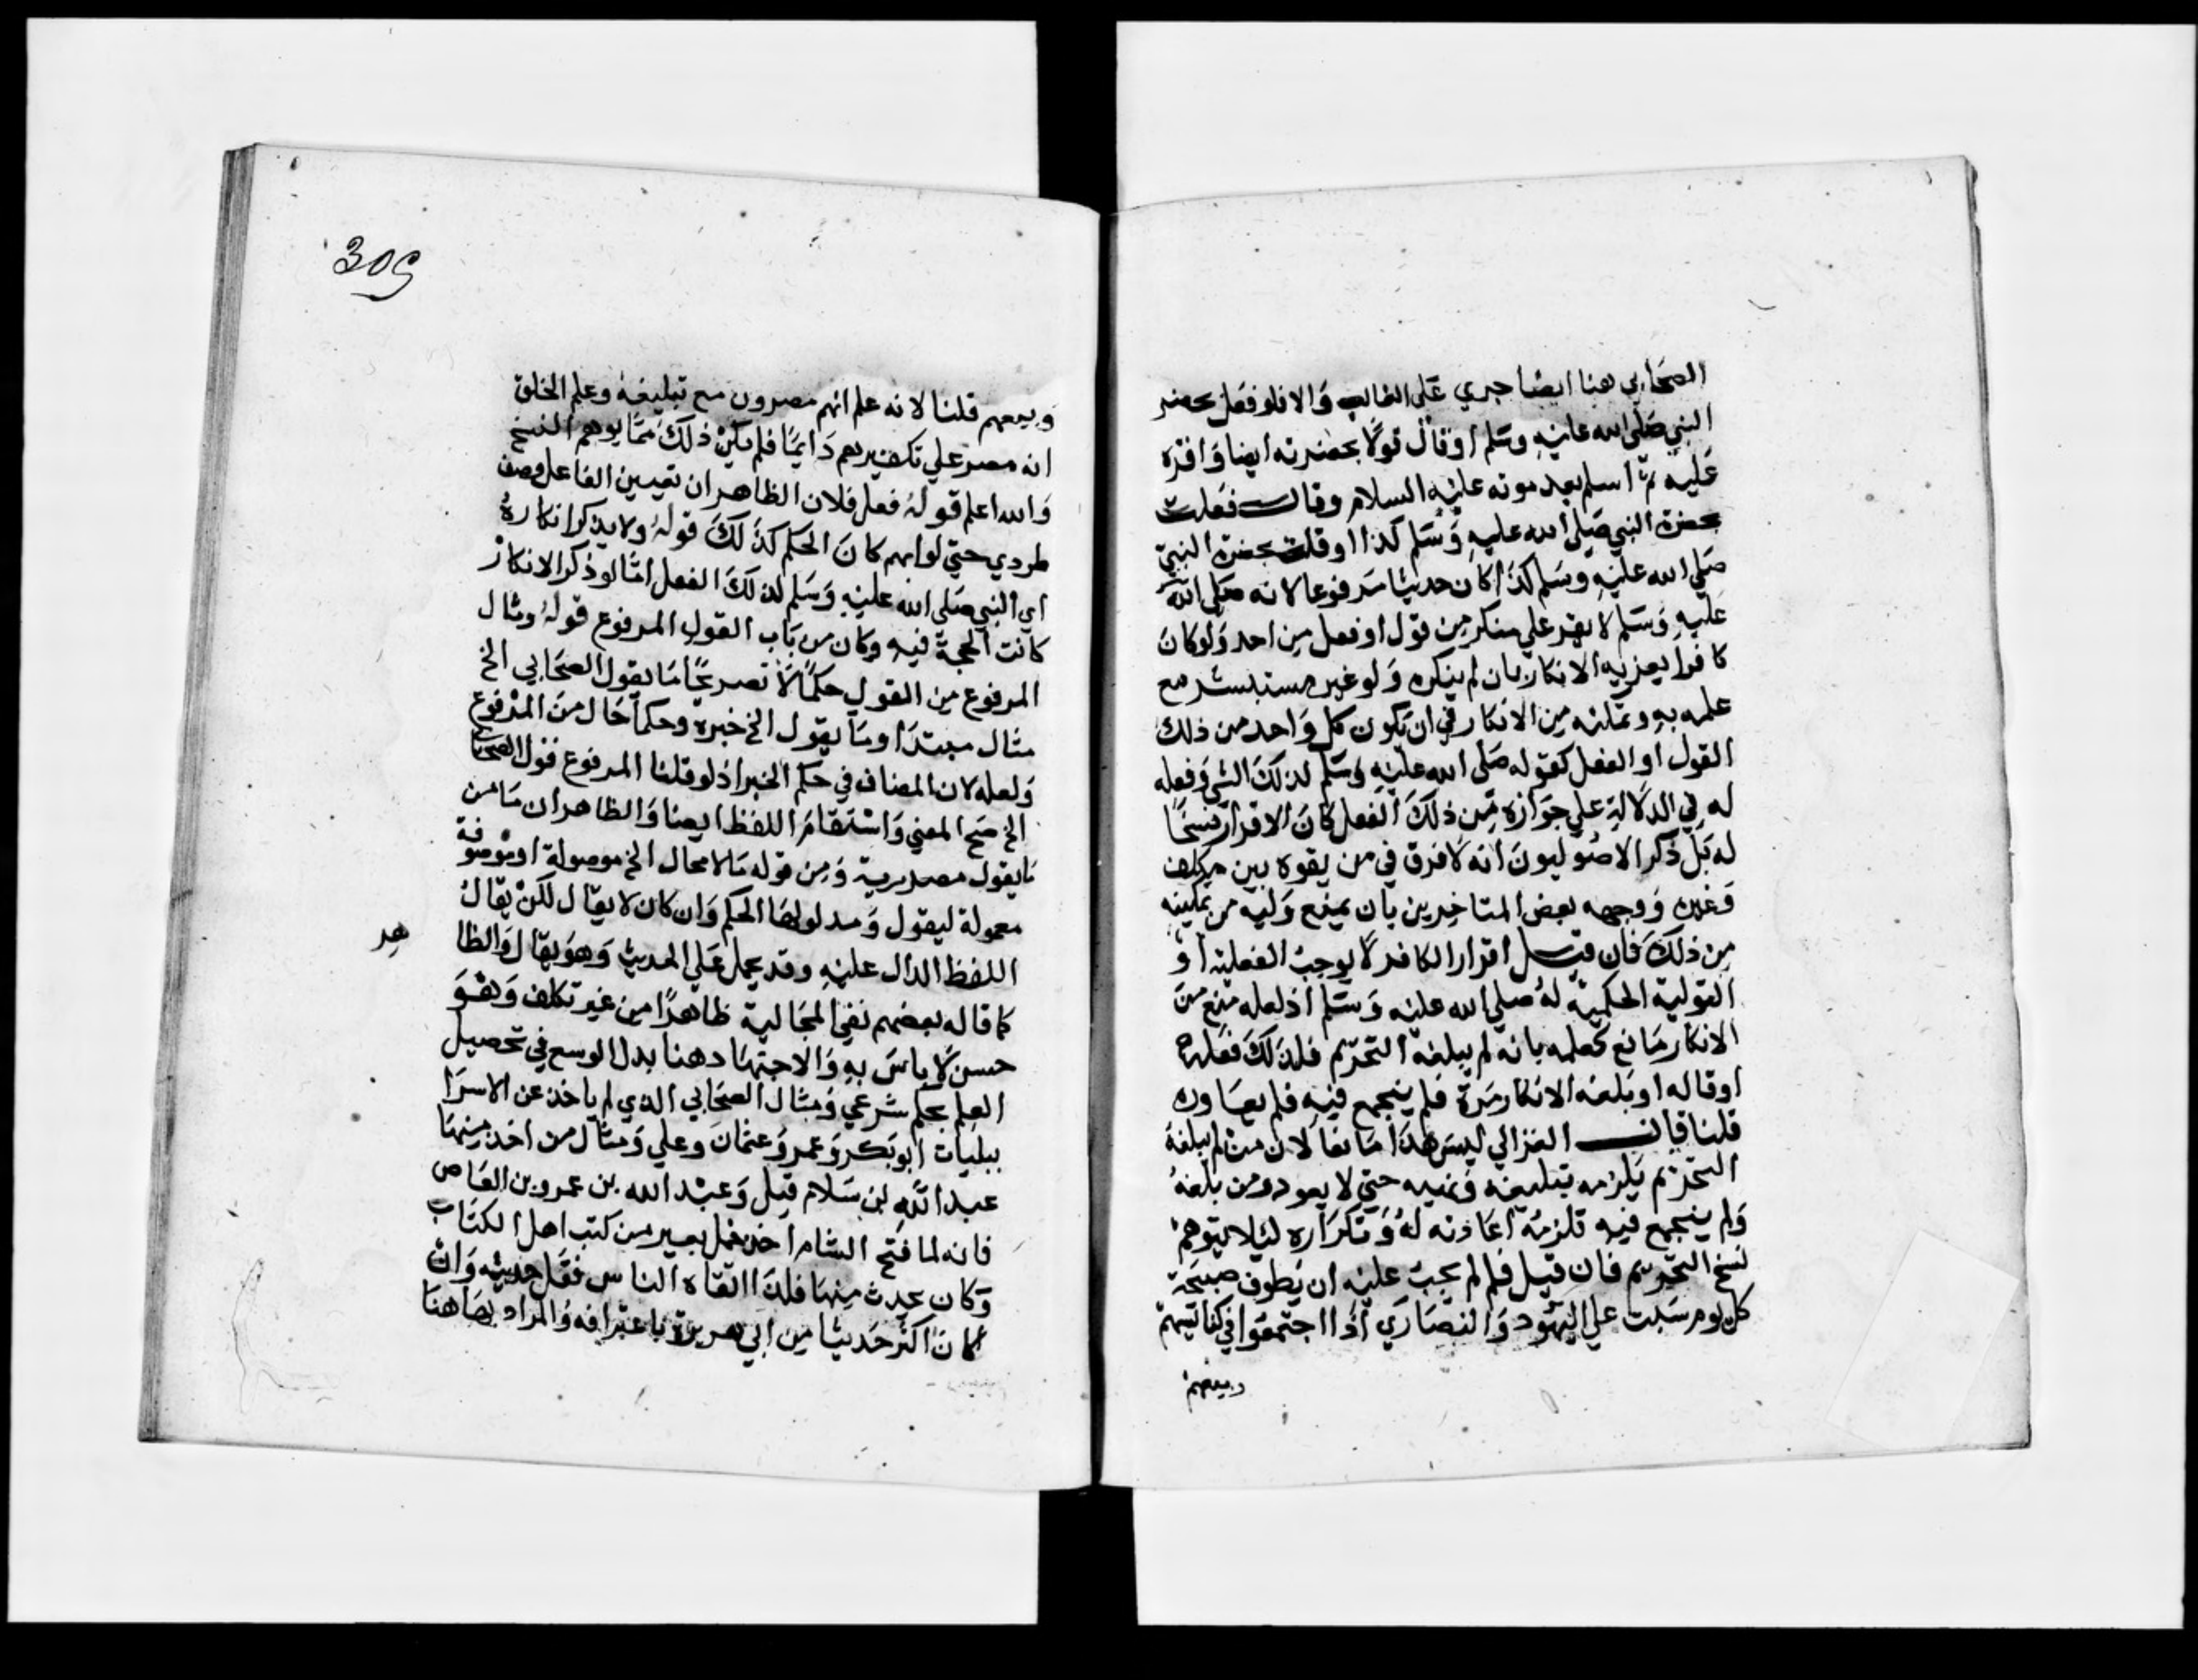 الصحابي هنا ايضا جري على الغالب والا فلو فعل بحضر
النبي صلى الله عليه وسلم او قال قولا بحضرته ايضا واقره
عليه ثم اسلم بعد موته عليه السلام وقال فعلت
بحضرة النبي صلى الله عليه وسلم كذا او قلت بحضرة النبي
صلى الله عليه وسلم كذا كان حديثا مرفوعا لانه صلى الله
عليه وسلم لا يقر على منكر من قول او فعل من احد ولو كان
كافرا يعزيه الانكار بان لم ينكره ولو غير مستبشر مع
علمه به وتمكنه من الانكار في ان يكون كل واحد من ذلك
القول او الفعل كقوله صلى الله عليه وسلم لذلك الشي وفعله
له في الدلالة علي جوازه من ذلك الفعل كان الاقرار نسخا
له بل ذكر الاصوليون انه لا فرق في من يقوه بين مكلف
وغيره ووجهه بعض المتاخرين بان يمنع وليه من تمكينه
من ذلك فان قيل اقرار الكافر لا يوجب الفعلية او
القولية الحكمية له صلي الله عليه وسلم اذ لعله منع من
الانكار مانع كعلمه بانه لم يبلغه التحريم فلذلك فعله
او قاله او بلغه الانكار مرة فلم ينجمع فيه فلم يعاوده
قلنا قال الغزالي ليس هذا مانعا لان من لم يبلغه
التحريم يلزمه تبليغه ونهيه حتي لا يعود ومن بلغه
ولم ينجمع فيه تلزمه اعادته له وتكراره ليلا يتوهم
نسخ التحريم فان قيل فلم لم يجب عليه ان يطوف صبيحة
كل يوم سبت علي اليهود والنصاري اذا اجتمعوا في كنايسهم
وبيعهم
309
وبيعهم قلنا لانه علم انهم مصرون مع تبليغه وعلم الخلق
انه مصر علي تكفيرهم دايما فلم يكن ذلك مما يوهم النسخ
والله اعلم قوله فعل فلان الظاهر ان تعيين الفاعل وصف
طردي حتي لو ابهم كان الحكم كذلك قوله ولا يذكر انكاره
اي النبي صلى الله عليه وسلم لذلك الفعل اما لو ذكر الانكار
كانت الحجة فيه وكان من باب القول المرفوع قوله ومثال
المرفوع من القول حكما لا تصريحا ما يقول الصحابي الخ
مثال مبتدا وما يقول الخ خبره وحكما حال من المرفوع
ولعله لان المضاف في حكم الخبر اذ لو قلنا المرفوع قول الصحا
الخ صح المعني واستقام اللفظ ايضا والظاهر ان ما من
ما يقول مصدرية ومن قوله مالا مجال الخ موصولة او موصوفة
معمولة ليقول ومدلولها الحكم وان كان لا يقال لكن يقال
اللفظ الدال عليه وقد يحمل على الحديث وهو يقال والظا
هر
كما قاله بعضهم نفي المجالية ظاهرا من غير تكلف وهو
حسن لا باس به والاجتهاد هنا بذل الوسع في تحصيل
العلم بحكم شرعي ومثال الصحابي الذي لم ياخذ عن الاسرا
ييليات ابو بكر وعمر وعثمان وعلي ومثال من اخذ منها
عبد الله بن سلام قيل وعبد الله بن عمرو بن العاص
فانه لما فتح الشام اخذ حمل بعير من كتب اهل الكتاب
وكان يحدث منها فلذا اتقاه الناس فقل حديثه وان
كان اكثر حديثا من ابي هريرة باعترافه والمراد بها هنا